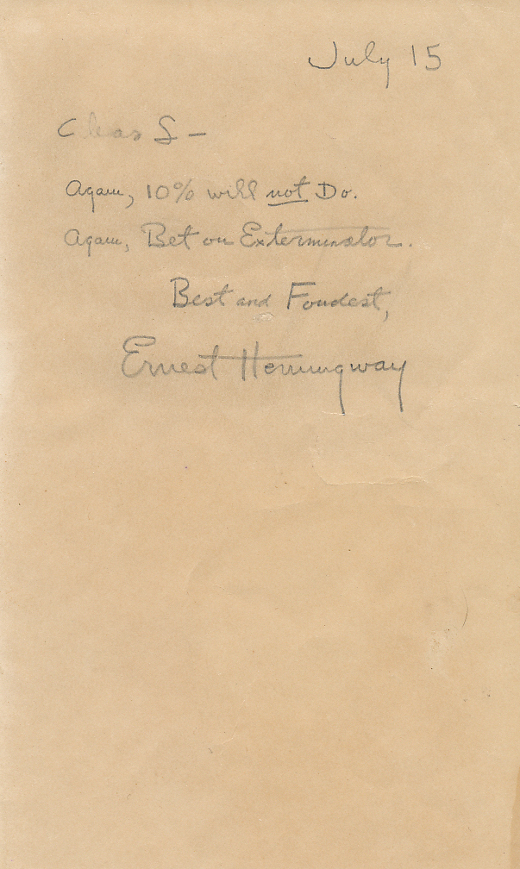 July 15
S –
Again, 10% will not Do.
Again, Bet on Exterminator.
Best and Fondest,
Ernest Hemingway